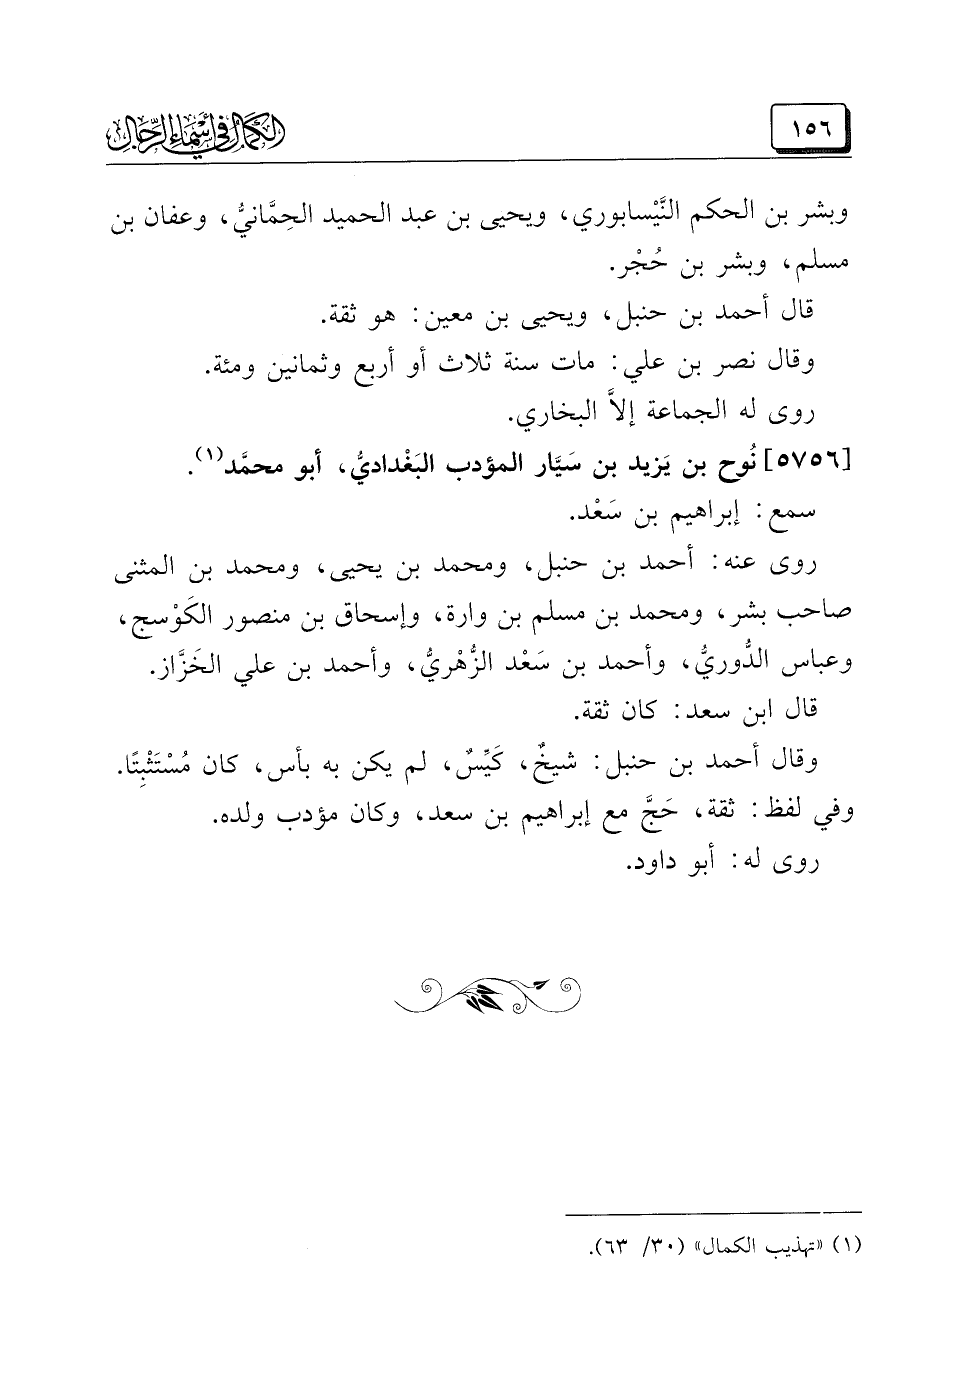 ١٥٦
الكمال في أسماء الرجال
وبشر بن الحكم النَّيْسابوري، ويحيى بن عبد الحميد الحِمَّانيُّ، وعفان بن
مسلم، وبشر بن حُجْر.
قال أحمد بن حنبل، ويحيى بن معين: هو ثقة.
وقال نصر بن علي: مات سنة ثلاث أو أربع وثمانين ومئة.
روى له الجماعة إلاَّ البخاري.
[٥٧٥٦] نُوح بن يَزيد بن سَيَّار المؤدب البَغْداديُّ، أبو محمَّد(١).
سمع: إبراهيم بن سَعْد.
روى عنه: أحمد بن حنبل، ومحمد بن يحيى، ومحمد بن المثنى
صاحب بشر، ومحمد بن مسلم بن وارة، وإسحاق بن منصور الكَوْسج،
وعباس الدُّوريُّ، وأحمد بن سَعْد الزُّهْريُّ، وأحمد بن علي الخَزَّاز.
قال ابن سعد: كان ثقة.
وقال أحمد بن حنبل: شيخٌ، كَيِّسٌ، لم يكن به بأس، كان مُسْتَثْبِتًا.
وفي لفظ: ثقة، حَجَّ مع إبراهيم بن سعد، وكان مؤدب ولده.
روى له: أبو داود.
(١) «تهذيب الكمال» (٣٠/ ٦٣).